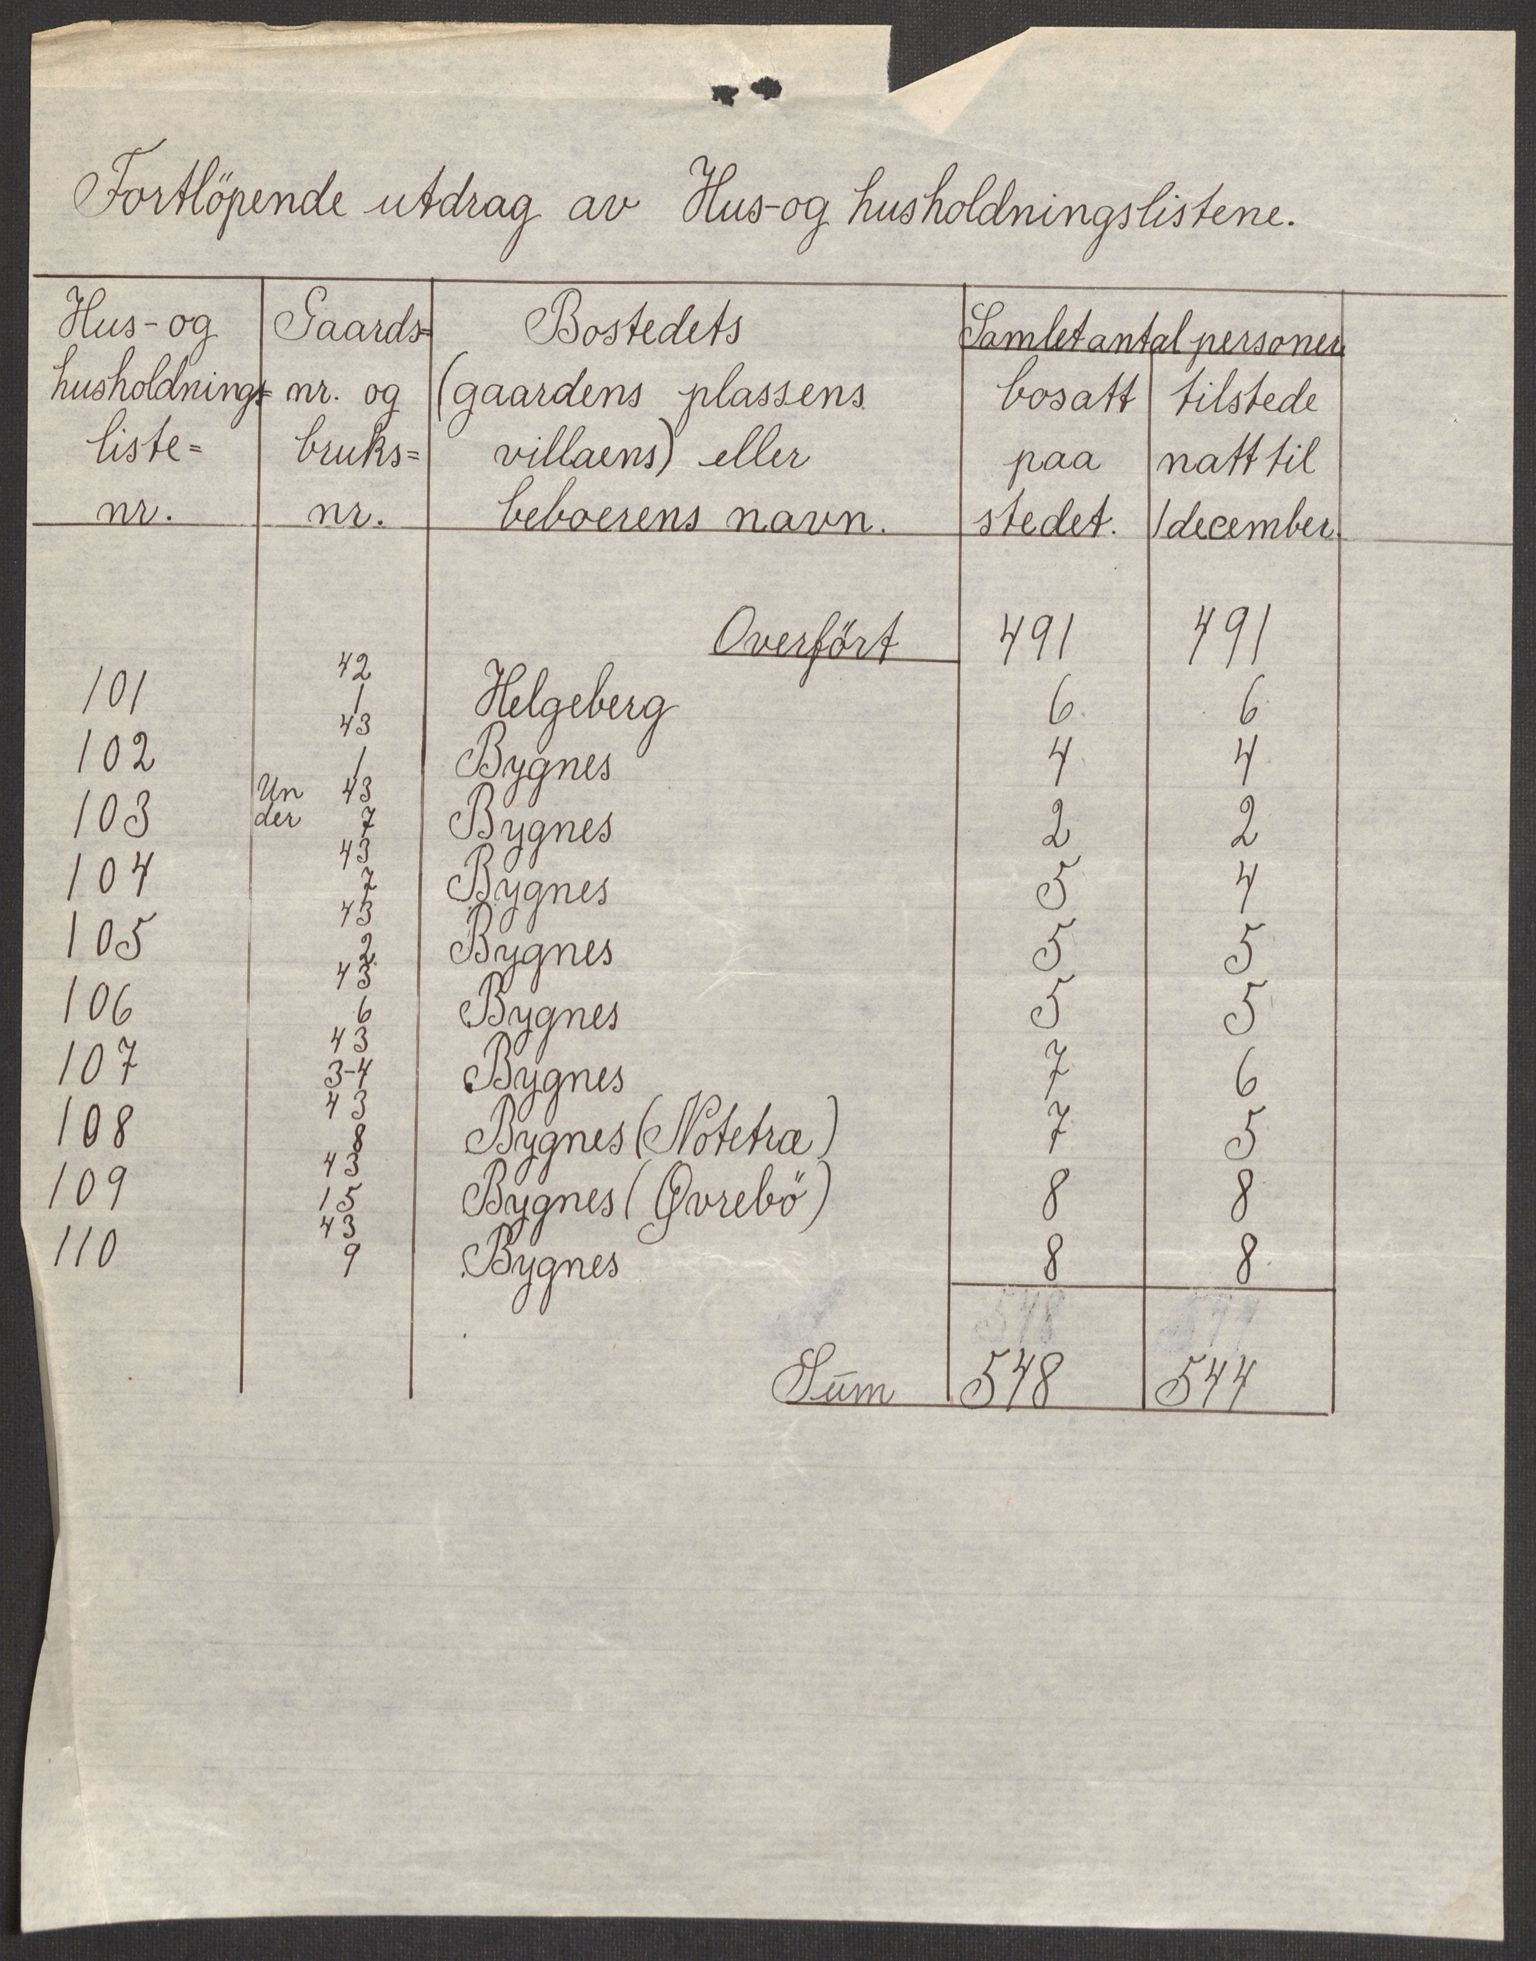 Fortlöpende utdrag av Hus-og husholdningslistene.
Hus-og Gaards= Bostedets Samlet antal personer
husholdnings= nr. og (gaardens plassens bosatt tilstede
liste= bruks= villaens) eller paa natt til
nr. nr. beboerens navn. stedet. 1 december.
Overfört 491 491
42
101 1 Helgeberg 6 6
43
102 1 Bygnes 4 4
Un 43
103 der 7 Bygnes 2 2
43
104 7 Bygnes 5 4
43
105 2 Bygnes 5 5
43
106 6 Bygnes 5 5
43
107 3-4 Bygnes 7 6
43
108 8 Bygnes (Notetræ) 7 5
43
109 15 Bygnes (Øvrebö) 8 8
43
110 9 Bygnes 8 8
548 544
Sum 548 544